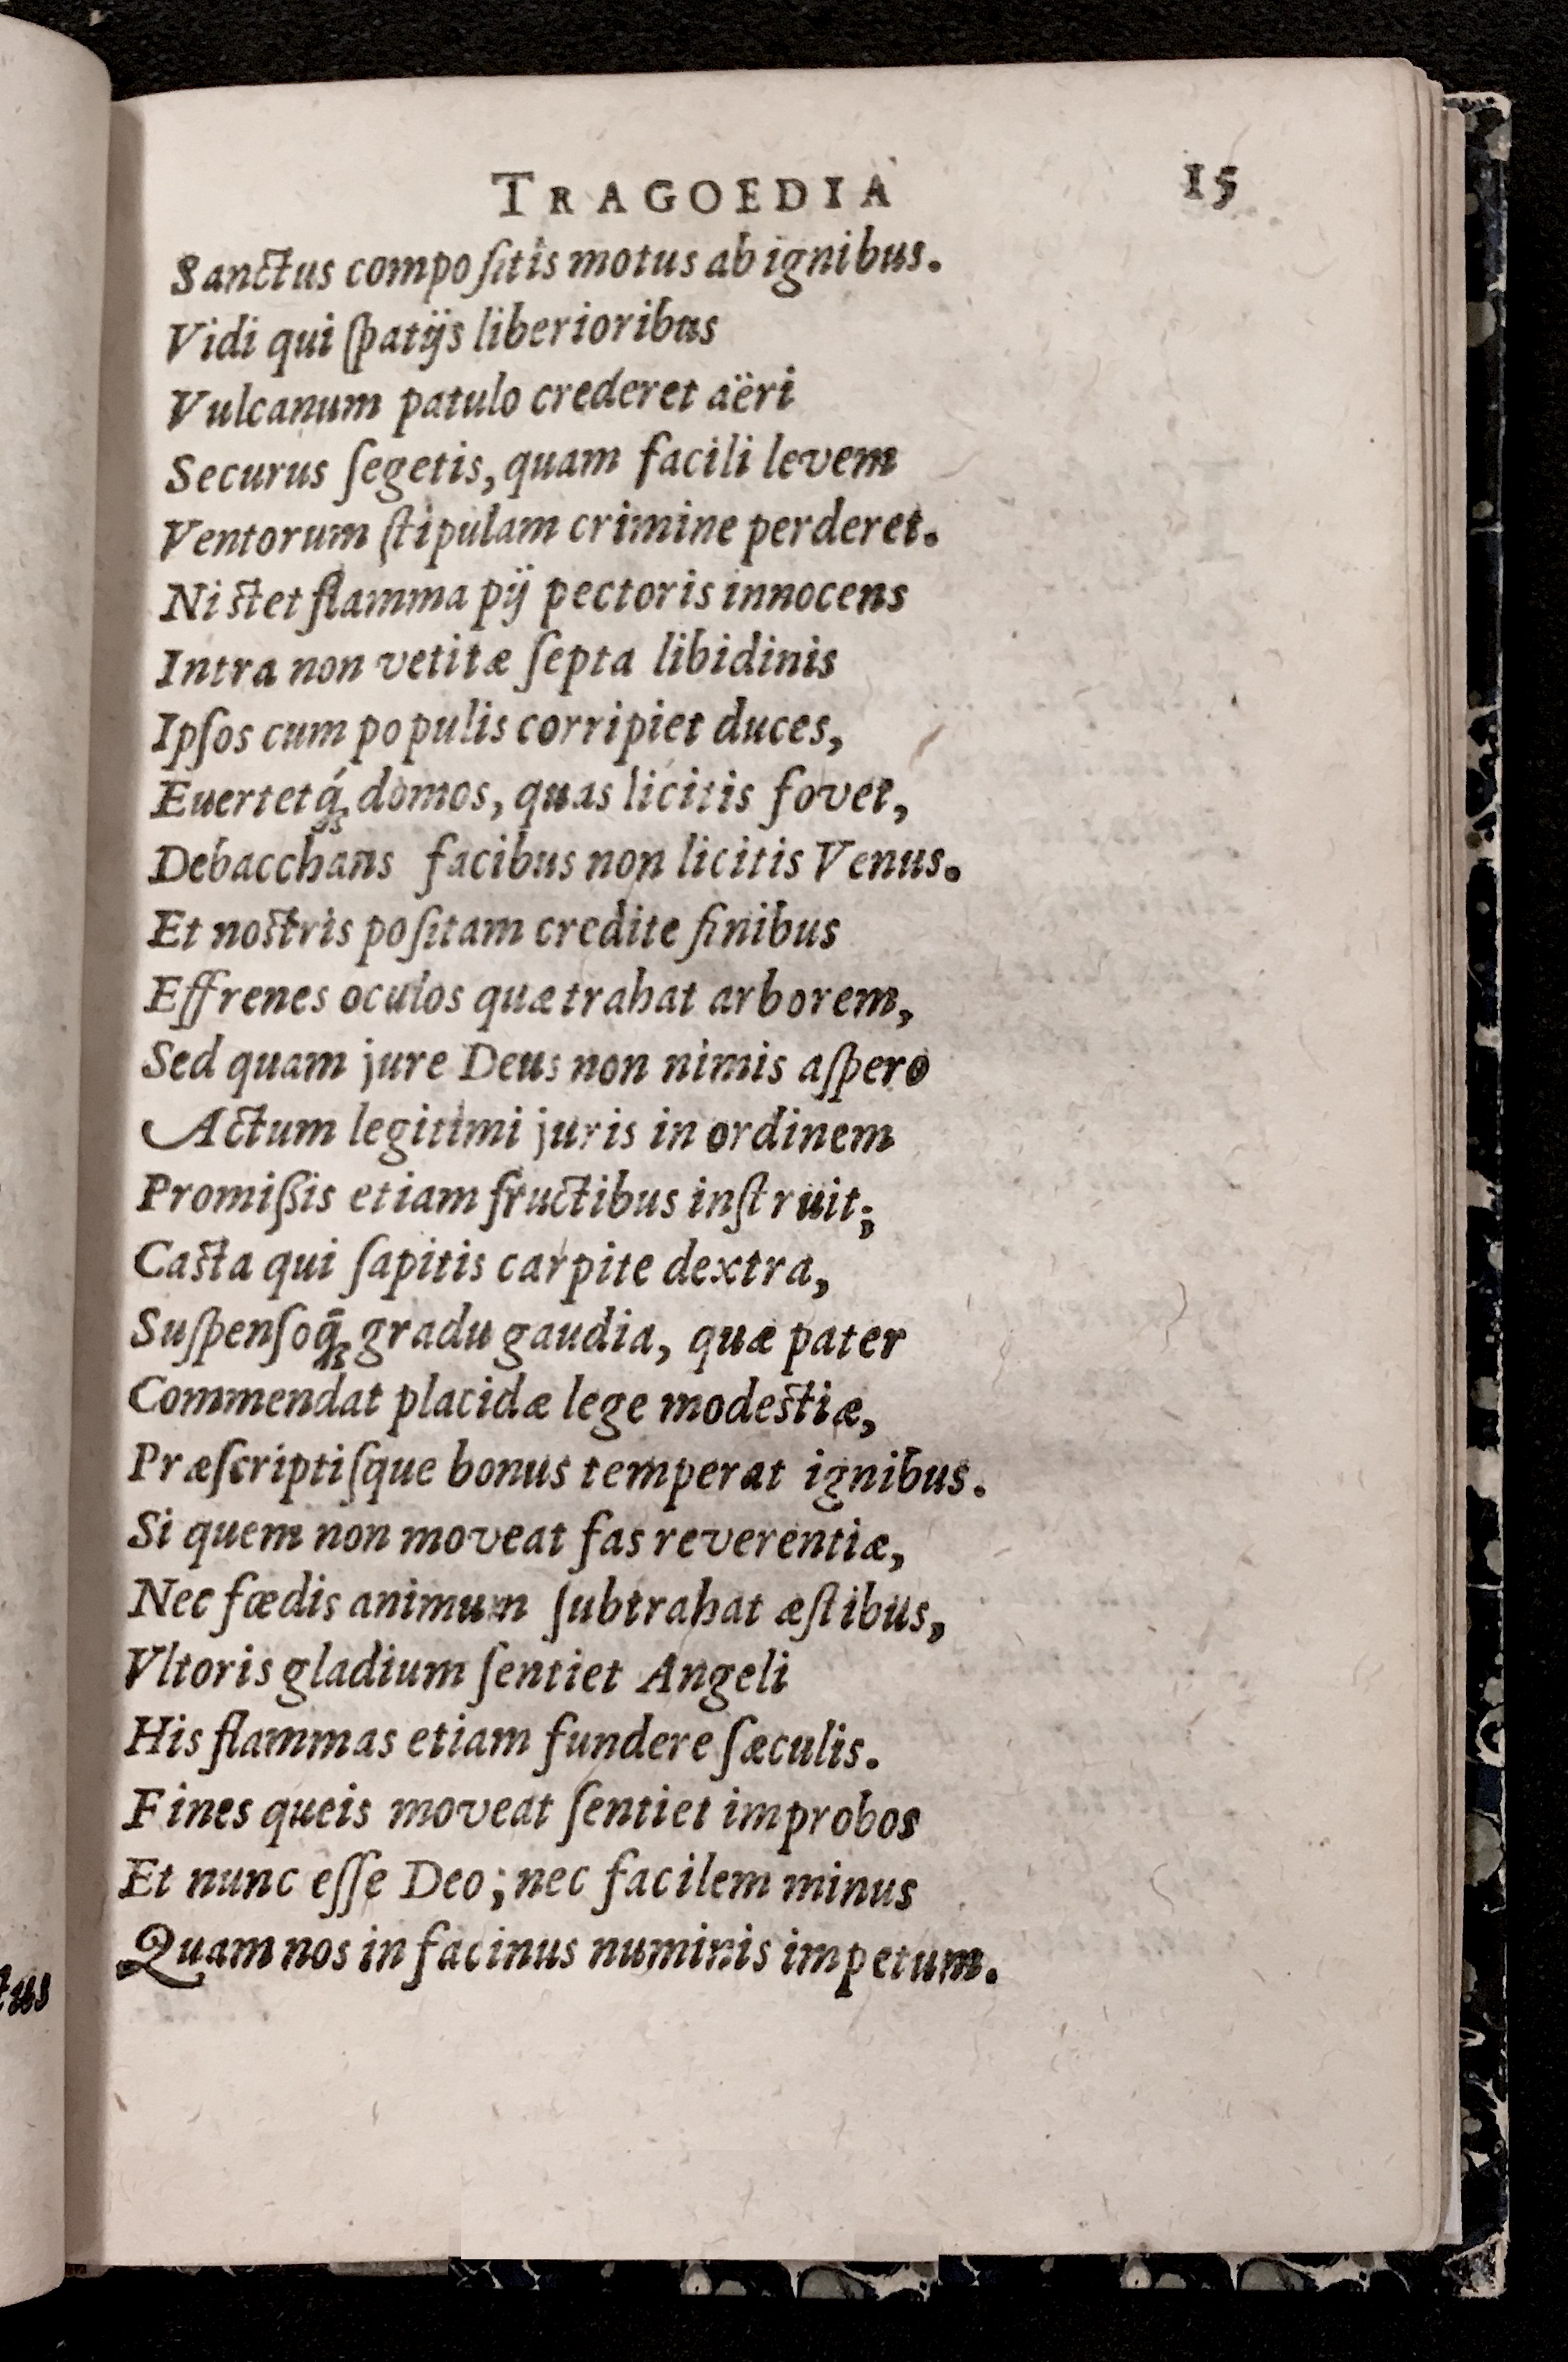 TRAGOEDIA 15
Sanctus compoſitis motus ab ignibus.
Vidi qui ſpatijs liberioribus
Vulcanum patulo crederet aëri
Securus ſegetis, quam facili levem
Ventorum ſtipulam crimine perderet.
Ni ſtet flamma pij pectoris innocens
Intra non vetitæ ſepta libidinis
Ipſos cum populis corripiet duces,
Euertetq́ꝫ domos, quas licitis fovet,
Debacchans facibus non licitis Venus.
Et noſtris poſitam credite finibus
Effrenes oculos quæ trahat arborem,
Sed quam jure Deus non nimis aſpero
Actum legitimi juris in ordinem
Promiſſis etiam fructibus inſtruit;
Caſta qui ſapitis carpite dextra,
Suſpenſoq̄ꝫ gradu gaudia, quæ pater
Commendat placidæ lege modeſtiæ,
Præſcriptiſque bonus temperat ignibus.
Si quem non moveat fas reverentiæ,
Nec fœdis animum ſubtrahat æſtibus,
Vltoris gladium ſentiet Angeli
His flammas etiam fundere ſæculis.
Fines queis moveat ſentiet improbos
Et nunc eſſe Deo; nec facilem minus
Quam nos in facinus numinis impetum.